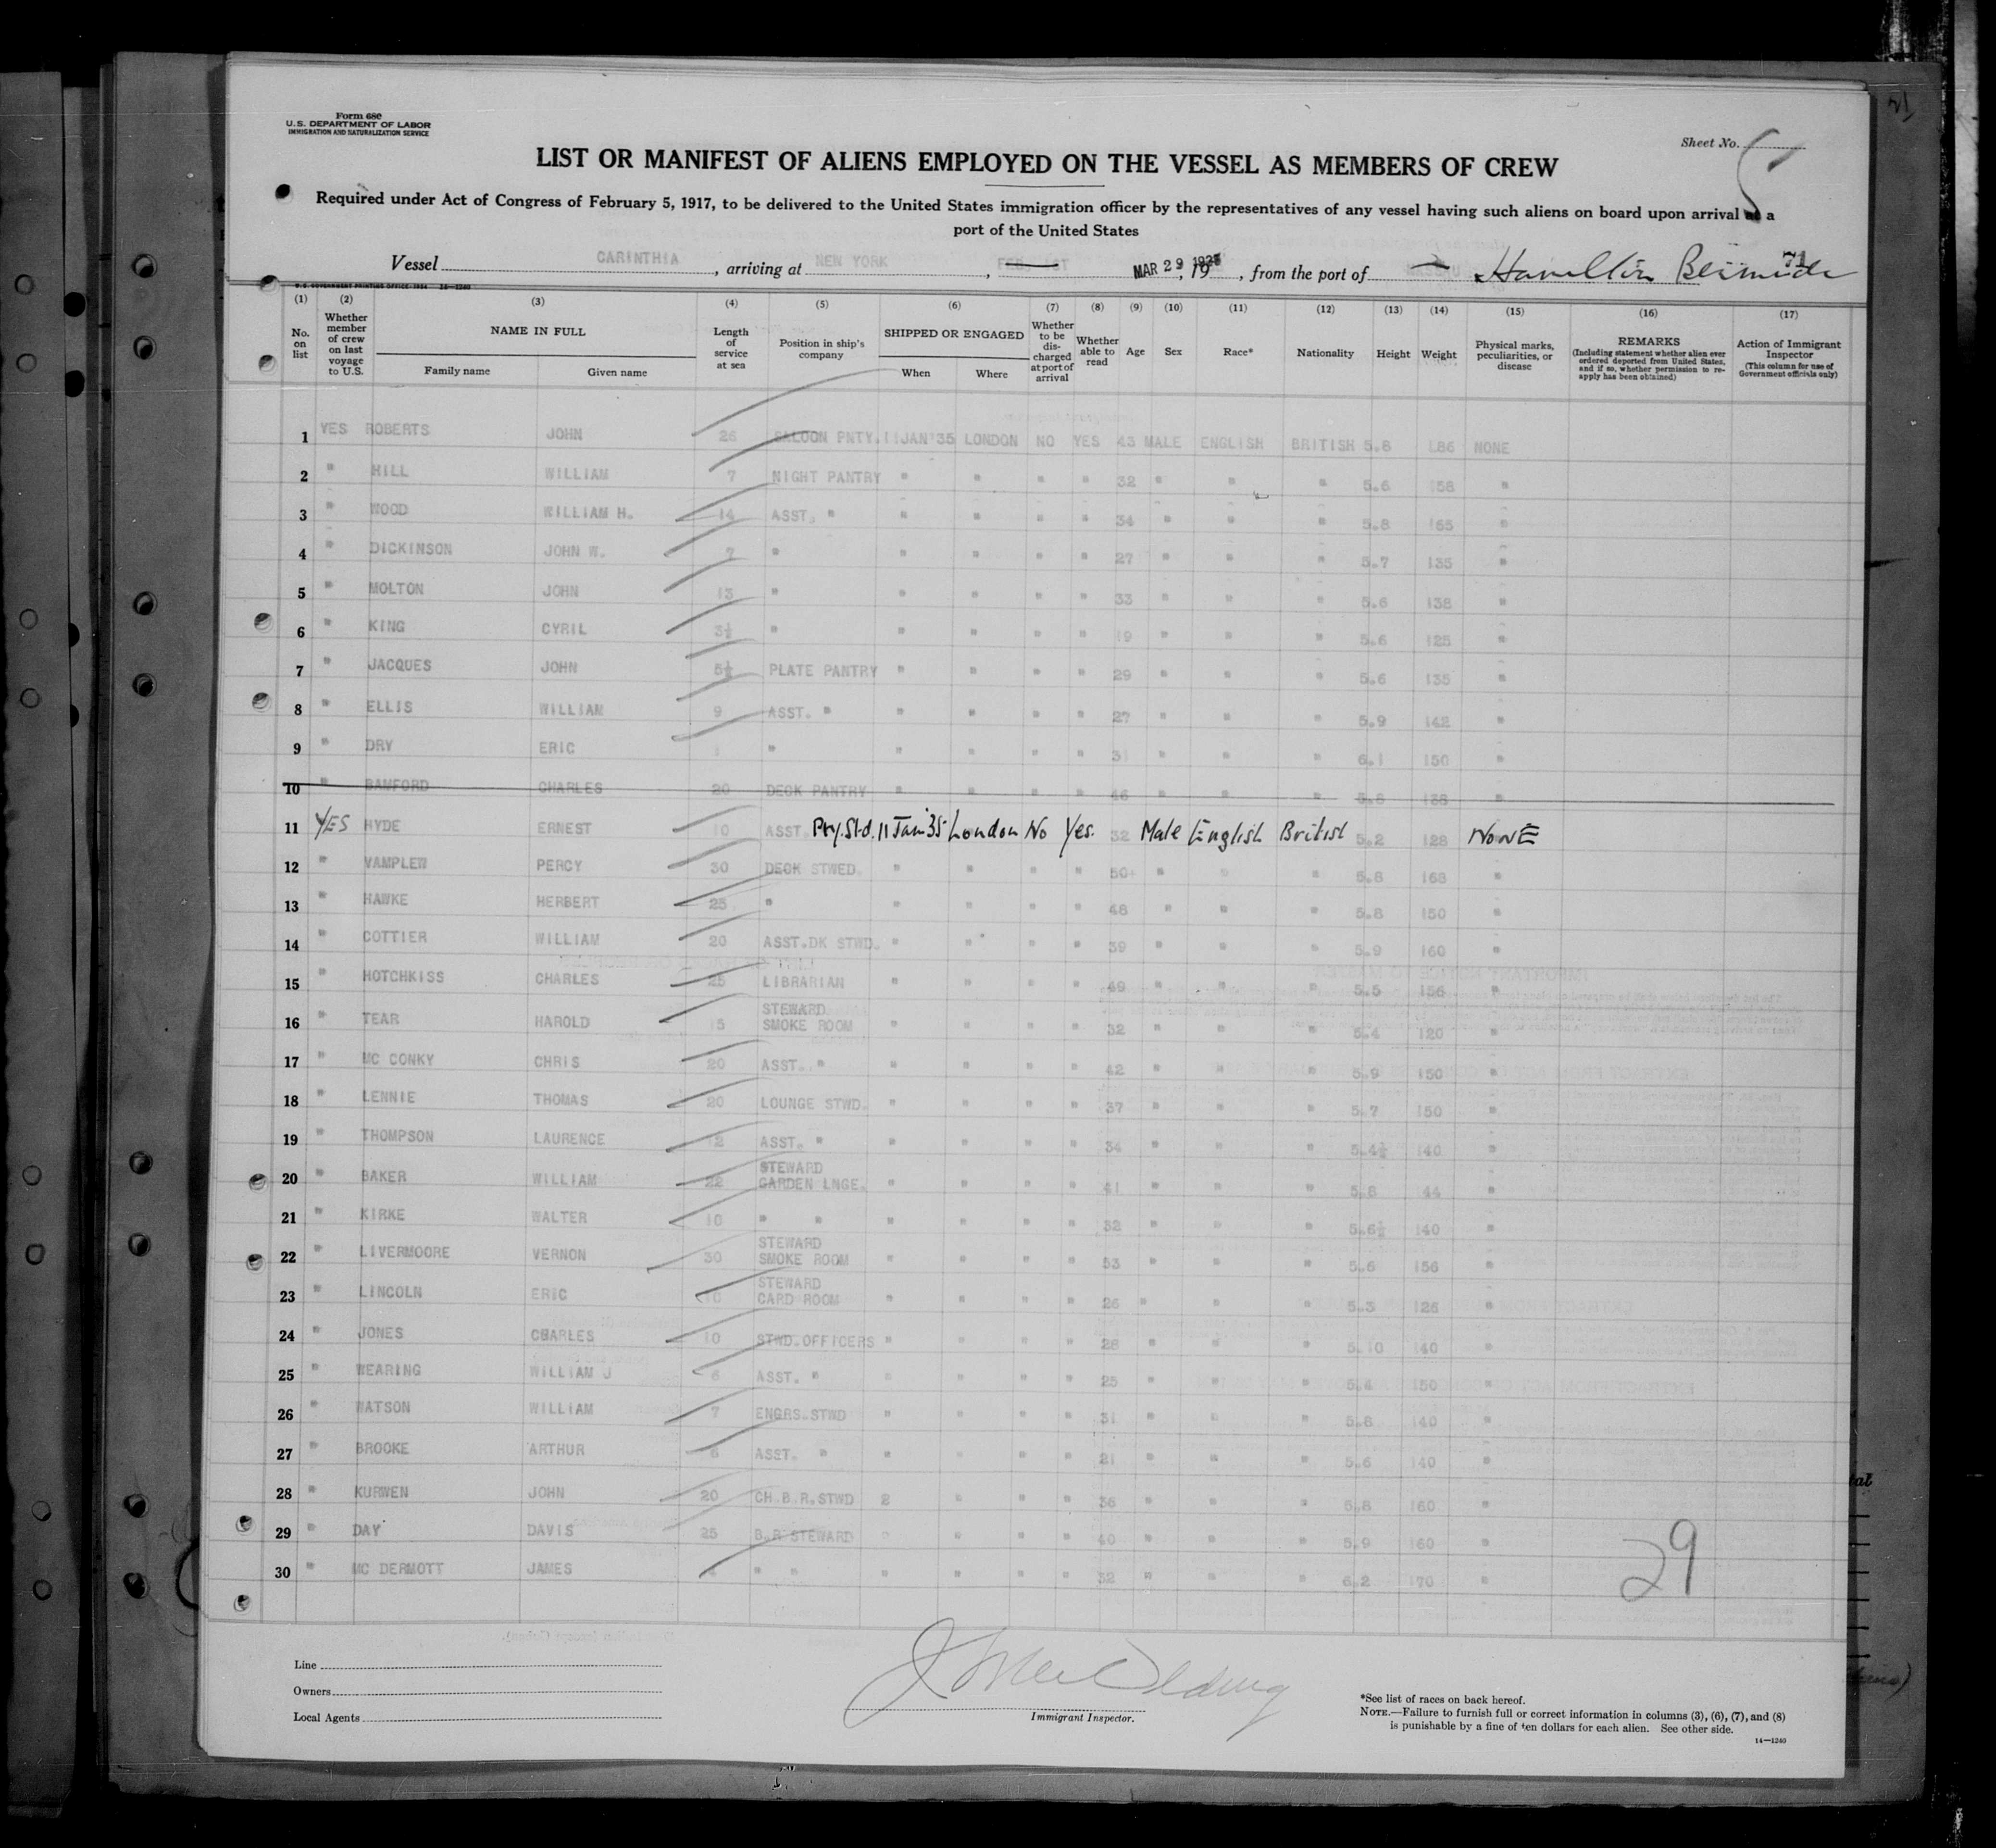 Form 680
U.S. DEPARTMENT OF LABOR
IMMIGRATION AND NATURALIZATION SERVICE
Sheet No. 5
LIST OR MANIFEST OF ALIENS EMPLOYED ON THE VESSEL AS MEMBERS OF CREW
Required under Act of Congress of February 5, 1917, to be delivered to the United States immigration officer by the representatives of any vessel having such aliens on board upon arrival at a
port of the United States
Vessel CARINTHIA, arriving at NEW YORK, MAR 29, 1935, from the port of Hamilton Bermuda 71
U.S. GOVERNMENT PRINTING OFFICE: 1934 14-1240
(1) (2) (3) (4) (5) (6) (7) (8) (9) (10) (11) (12) (13) (14) (15) (16) (17)
No. on list
Whether member of crew on last voyage to U.S.
NAME IN FULL
Family name Given name
Length of service at sea
Position in ship's company
SHIPPED OR ENGAGED
When Where
Whether to be discharged at port of arrival
Whether able to read
Age Sex Race* Nationality Height Weight
Physical marks, peculiarities, or disease
REMARKS
(Including statement whether alien ever ordered deported from United States, and if so, whether permission to re-apply has been obtained)
Action of Immigrant Inspector
(This column for use of Government officials only)
1 YES ROBERTS JOHN 26 SALOON PNTY. 11JAN'35 LONDON NO YES 43 MALE ENGLISH BRITISH 5.8 186 NONE
2 " HILL WILLIAM 7 NIGHT PANTRY " " " " 32 " " " 5.6 158 "
3 " WOOD WILLIAM H. 14 ASST. " " " " " 34 " " " 5.8 165 "
4 " DICKINSON JOHN W. 7 " " " " " 27 " " " 5.7 135 "
5 " MOLTON JOHN 13 " " " " " 33 " " " 5.6 138 "
6 " KING CYRIL 3½ " " " " " 19 " " " 5.6 125 "
7 " JACQUES JOHN 5½ PLATE PANTRY " " " " 29 " " " 5.6 135 "
8 " ELLIS WILLIAM 9 ASST. " " " " " 27 " " " 5.9 142 "
9 " DRY ERIC 1 " " " " " 31 " " " 6.1 150 "
10 " BAMFORD CHARLES 20 DECK PANTRY " " " " 46 " " " 5.8 138 "
11 YES HYDE ERNEST 10 ASST. Pty. Std. 11 Jan '35 London No Yes. 32 Male English British 5.2 128 NONE
12 " VAMPLEW PERCY 30 DECK STWED. " " " " 50 " " " 5.8 168 "
13 " HAWKE HERBERT 25 " " " " " 48 " " " 5.8 150 "
14 " COTTIER WILLIAM 20 ASST.DK STWD. " " " " 39 " " " 5.9 160 "
15 " HOTCHKISS CHARLES 25 LIBRARIAN " " " " 49 " " " 5.5 156 "
16 " TEAR HAROLD 5 STEWARD SMOKE ROOM " " " " 32 " " " 5.4 120 "
17 " MC CONKY CHRIS 20 ASST. " " " " " 42 " " " 5.9 150 "
18 " LENNIE THOMAS 20 LOUNGE STWD. " " " " 37 " " " 5.7 150 "
19 " THOMPSON LAURENCE 12 ASST. " " " " " 34 " " " 5.4½ 140 "
20 " BAKER WILLIAM 22 STEWARD GARDEN LNGE. " " " " 41 " " " 5.8 44 "
21 " KIRKE WALTER 10 " " " " " " 32 " " " 5.6½ 140 "
22 " LIVERMOORE VERNON 30 STEWARD SMOKE ROOM " " " " 53 " " " 5.6 156 "
23 " LINCOLN ERIC 10 STEWARD CARD ROOM " " " " 26 " " " 5.3 126 "
24 " JONES CHARLES 10 STWD.OFFICERS " " " " 28 " " " 5.10 140 "
25 " WEARING WILLIAM J 6 ASST. " " " " " 25 " " " 5.4 150 "
26 " WATSON WILLIAM 7 ENGRS.STWD " " " " 31 " " " 5.8 140 "
27 " BROOKE ARTHUR 6 ASST. " " " " " 21 " " " 5.6 140 "
28 " KURWEN JOHN 20 CH.B.R.STWD 2 " " " 36 " " " 5.8 160 "
29 " DAY DAVIS 25 B.R STEWARD " " " " 40 " " " 5.9 160 "
30 " MC DERMOTT JAMES " " " " " " 32 " " " 6.2 170 "
29
Line
Owners
Local Agents
Immigrant Inspector.
*See list of races on back hereof.
NOTE.—Failure to furnish full or correct information in columns (3), (6), (7), and (8)
is punishable by a fine of ten dollars for each alien. See other side.
14—1240